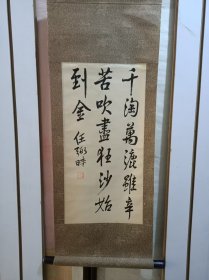 千淘萬漉雖辛
苦吹盡狂沙始
到金 任弼時